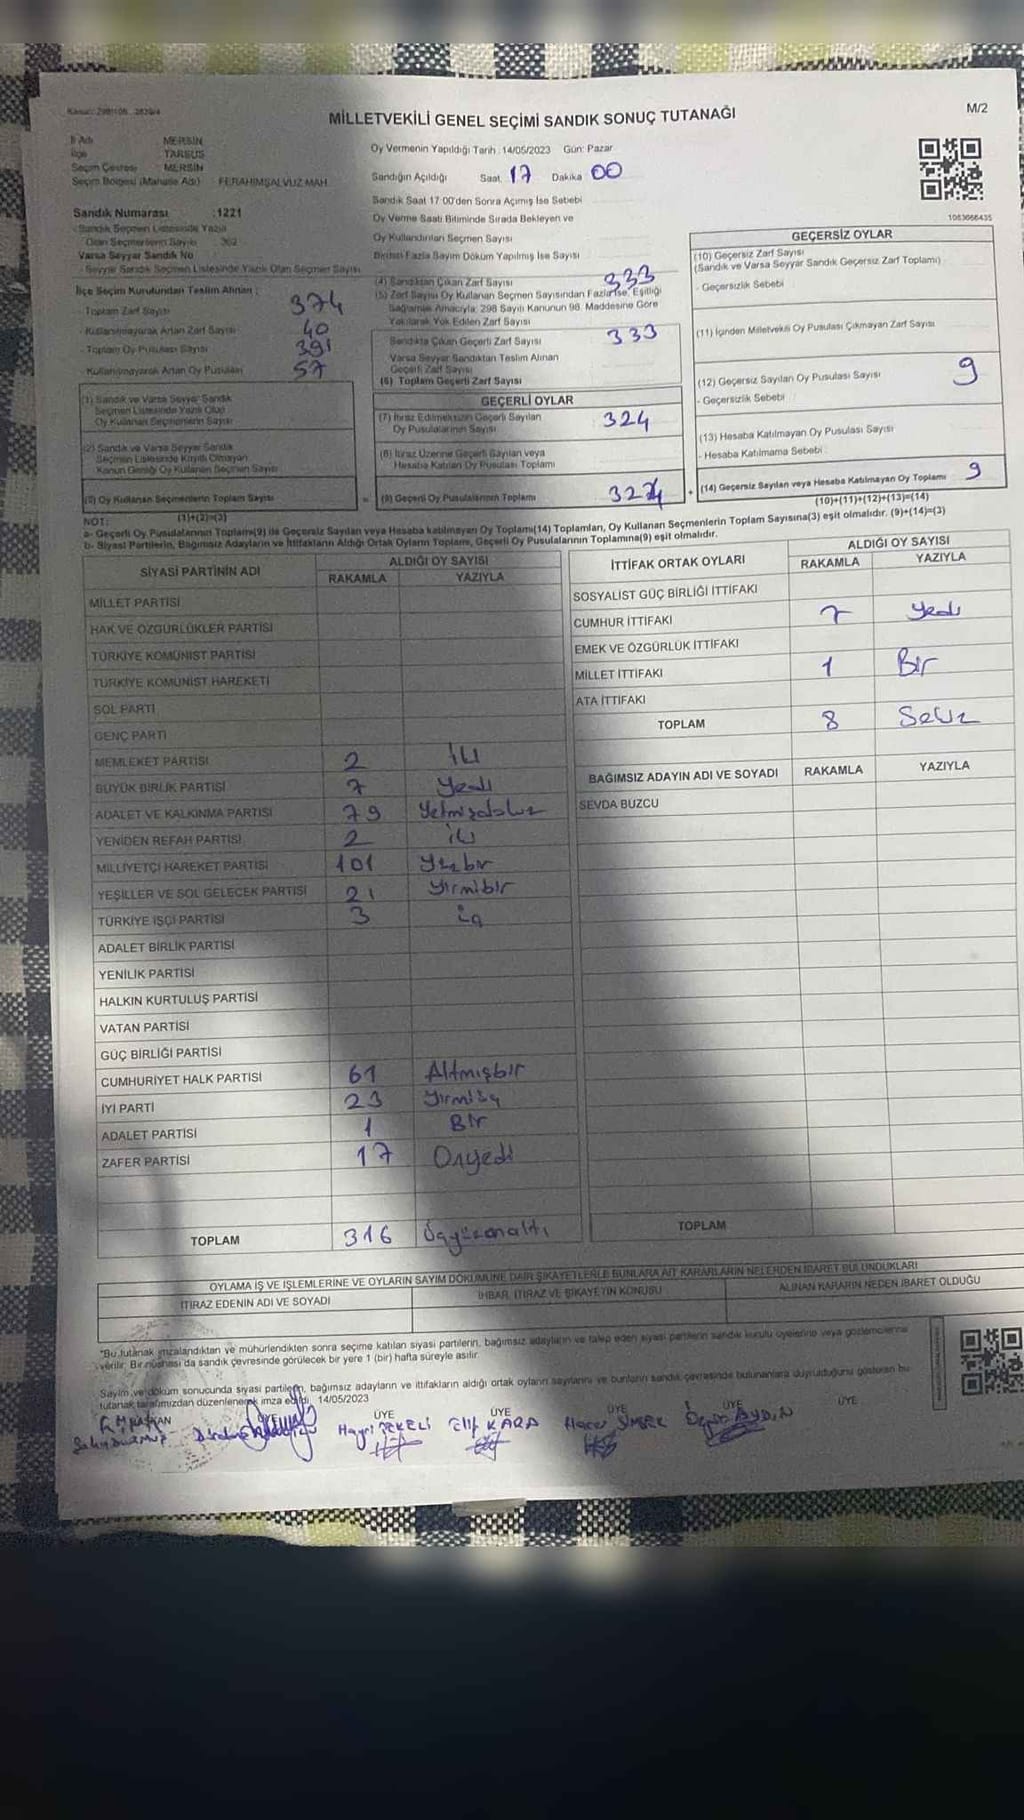 MİLLETVEKİLİ GENEL SEÇİMİ SANDIK SONUÇ TUTANAĞI
M/2
İl Adı MERSİN
İlçe TARSUS
Seçim Çevresi MERSİN
Seçim Bölgesi (Mahalle Adı) FERAHİMŞALVUZ MAH.
Oy Vermenin Yapıldığı Tarih : 14/05/2023 Gün: Pazar
Sandığın Açıldığı Saat 17 Dakika 00
Sandık Saat 17:00'den Sonra Açılmış İse Sebebi
Oy Verme Saati Bitiminde Sırada Bekleyen ve
Oy Kullandırılan Seçmen Sayısı
Birden Fazla Sayım Döküm Yapılmış İse Sayısı
1063666435
Sandık Numarası :1221
Sandık Seçmen Listesinde Yazılı
Olan Seçmenlerin Sayısı 362
Varsa Seyyar Sandık No
Seyyar Sandık Seçmen Listesinde Yazılı Olan Seçmen Sayısı
İlçe Seçim Kurulundan Teslim Alınan :
Toplam Zarf Sayısı 374
Kullanılmayarak Artan Zarf Sayısı 40
Toplam Oy Pusulası Sayısı 391
Kullanılmayarak Artan Oy Pusulası 57
(1) Sandık ve Varsa Seyyar Sandık
Seçmen Listesinde Yazılı Olup
Oy Kullanan Seçmenlerin Sayısı
(2) Sandık ve Varsa Seyyar Sandık
Seçmen Listesinde Kayıtlı Olmayan
Kanun Gereği Oy Kullanan Seçmen Sayısı
(3) Oy Kullanan Seçmenlerin Toplam Sayısı
(1)+(2)=(3)
(4) Sandıktan Çıkan Zarf Sayısı 333
(5) Zarf Sayısı Oy Kullanan Seçmen Sayısından Fazla İse, Eşitliği
Sağlamak Amacıyla, 298 Sayılı Kanunun 98. Maddesine Göre
Yakılarak Yok Edilen Zarf Sayısı
Sandıkta Çıkan Geçerli Zarf Sayısı 333
Varsa Seyyar Sandıktan Teslim Alınan
Geçerli Zarf Sayısı
(6) Toplam Geçerli Zarf Sayısı
GEÇERLİ OYLAR
(7) İtiraz Edilmeksizin Geçerli Sayılan
Oy Pusulalarının Sayısı 324
(8) İtiraz Üzerine Geçerli Sayılan veya
Hesaba Katılan Oy Pusulası Toplamı
= (9) Geçerli Oy Pusulalarının Toplamı 324 +
GEÇERSİZ OYLAR
(10) Geçersiz Zarf Sayısı
(Sandık ve Varsa Seyyar Sandık Geçersiz Zarf Toplamı)
- Geçersizlik Sebebi
(11) İçinden Milletvekili Oy Pusulası Çıkmayan Zarf Sayısı
(12) Geçersiz Sayılan Oy Pusulası Sayısı 9
- Geçersizlik Sebebi
(13) Hesaba Katılmayan Oy Pusulası Sayısı
- Hesaba Katılmama Sebebi
(14) Geçersiz Sayılan veya Hesaba Katılmayan Oy Toplamı 9
(10)+(11)+(12)+(13)=(14)
NOT:
a- Geçerli Oy Pusulalarının Toplamı(9) ile Geçersiz Sayılan veya Hesaba katılmayan Oy Toplamı(14) Toplamları, Oy Kullanan Seçmenlerin Toplam Sayısına(3) eşit olmalıdır. (9)+(14)=(3)
b- Siyasi Partilerin, Bağımsız Adayların ve İttifakların Aldığı Ortak Oyların Toplamı, Geçerli Oy Pusulalarının Toplamına(9) eşit olmalıdır.
SİYASİ PARTİNİN ADI ALDIĞI OY SAYISI
RAKAMLA YAZIYLA
MİLLET PARTİSİ
HAK VE ÖZGÜRLÜKLER PARTİSİ
TÜRKİYE KOMÜNİST PARTİSİ
TÜRKİYE KOMÜNİST HAREKETİ
SOL PARTİ
GENÇ PARTİ
MEMLEKET PARTİSİ 2 İki
BÜYÜK BİRLİK PARTİSİ 7 Yedi
ADALET VE KALKINMA PARTİSİ 79 Yetmişdokuz
YENİDEN REFAH PARTİSİ 2 iki
MİLLİYETÇİ HAREKET PARTİSİ 101 Yüzbir
YEŞİLLER VE SOL GELECEK PARTİSİ 21 Yirmibir
TÜRKİYE İŞÇİ PARTİSİ 3 üç
ADALET BİRLİK PARTİSİ
YENİLİK PARTİSİ
HALKIN KURTULUŞ PARTİSİ
VATAN PARTİSİ
GÜÇ BİRLİĞİ PARTİSİ
CUMHURİYET HALK PARTİSİ 61 Altmışbir
İYİ PARTİ 23 Yirmiüç
ADALET PARTİSİ 1 Bir
ZAFER PARTİSİ 17 Onyedi
TOPLAM 316 Üçyüzonaltı
İTTİFAK ORTAK OYLARI ALDIĞI OY SAYISI
RAKAMLA YAZIYLA
SOSYALİST GÜÇ BİRLİĞİ İTTİFAKI
CUMHUR İTTİFAKI 7 Yedi
EMEK VE ÖZGÜRLÜK İTTİFAKI
MİLLET İTTİFAKI 1 Bir
ATA İTTİFAKI
TOPLAM 8 Sekiz
BAĞIMSIZ ADAYIN ADI VE SOYADI RAKAMLA YAZIYLA
SEVDA BUZCU
TOPLAM
OYLAMA İŞ VE İŞLEMLERİNE VE OYLARIN SAYIM DÖKÜMÜNE DAİR ŞİKAYETLERLE BUNLARA AİT KARARLARIN NELERDEN İBARET BULUNDUKLARI
İTİRAZ EDENİN ADI VE SOYADI İHBAR, İTİRAZ VE ŞİKAYETİN KONUSU ALINAN KARARIN NEDEN İBARET OLDUĞU
"Bu tutanak imzalandıktan ve mühürlendikten sonra seçime katılan siyasi partilerin, bağımsız adayların ve talep eden siyasi partilerin sandık kurulu üyelerine veya gözlemcilerine
verilir. Bir nüshası da sandık çevresinde görülecek bir yere 1 (bir) hafta süreyle asılır.
Sayım ve döküm sonucunda siyasi partilerin, bağımsız adayların ve ittifakların aldığı ortak oyların sayılarını ve bunların sandık çevresinde bulunanlara duyrulduğunu gösteren bu
tutanak tarafımızdan düzenlenerek imza edildi. 14/05/2023
BAŞKAN ÜYE ÜYE ÜYE ÜYE ÜYE
Hayri Elif KARA Hacer AYDIN